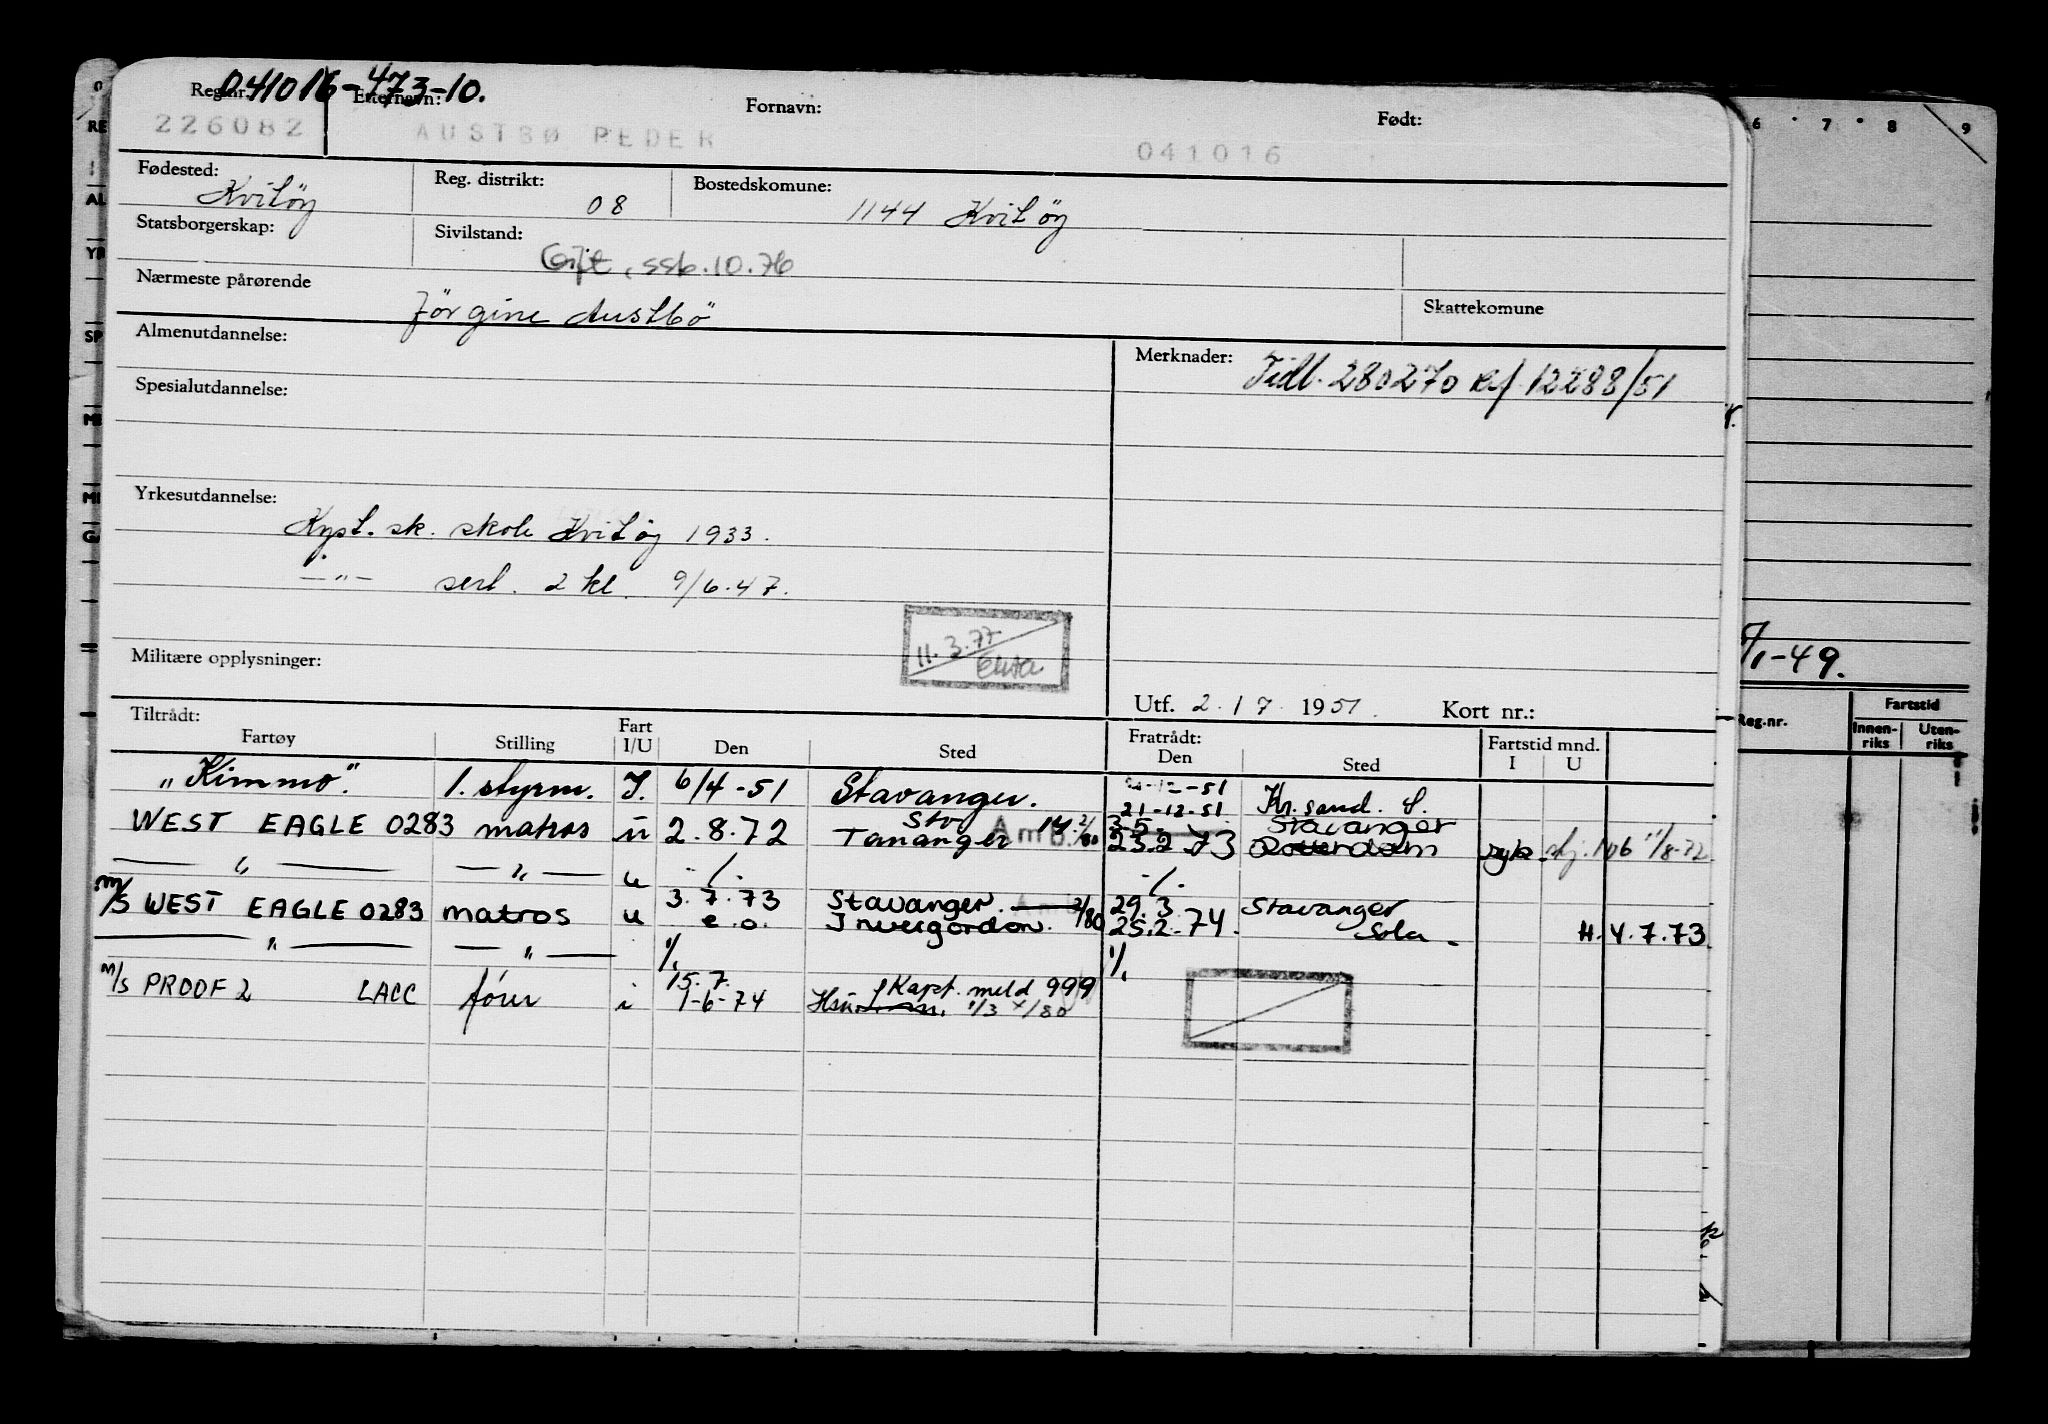 041016-473-10.
Reg.nr. Etternavn: Fornavn: Født:
226082 AUSTBØ PEDER 041016
Fødested: Reg. distrikt: Bostedskomune:
Kvitöy 08 1144 Kvitöy
Statsborgerskap: Sivilstand:
Gift, ssb.10.76
Nærmeste pårørende Skattekomune
Jörgine Austbö
Almenutdannelse: Merknader: Tidl. 280270 Ref. 12288/51
Spesialutdannelse:
Yrkesutdannelse:
Kyst. sk. skole Kvitöy 1933.
—"— sert. 2 kl. 9/6.47.
11.3.77
Militære opplysninger:
Utf. 2. 17. 1951. Kort nr.:
Tiltrådt: Fratrådt: Fartstid mnd.
Fartøy Stilling Fart I/U Den Sted Den Sted I U
"Kimmo". 1. styrm. I. 6/4-51 Stavanger. 21-12-51. Kr.sand. S.
WEST EAGLE 0283 matros u 2.8.72 Tananger 14.2/80 23.2.73 Rotterdam 11/8-72
—"— —"— u -/- -/-
3.7.73 Stavanger. 2/80 29.3. Stavanger
m/s WEST EAGLE 0283 matros u e.o. Invergordon. 25.2.74. Sola H. 4.7.73
—"— —"— 1/1 1/1
15.7. Kapt. meld 999
m/s PROOF 2 LACC förer i 1-6-74 1/3 /80
6 7 8 9
/1-49.
Reg.nr. Fartstid
Innen-riks Uten-riks